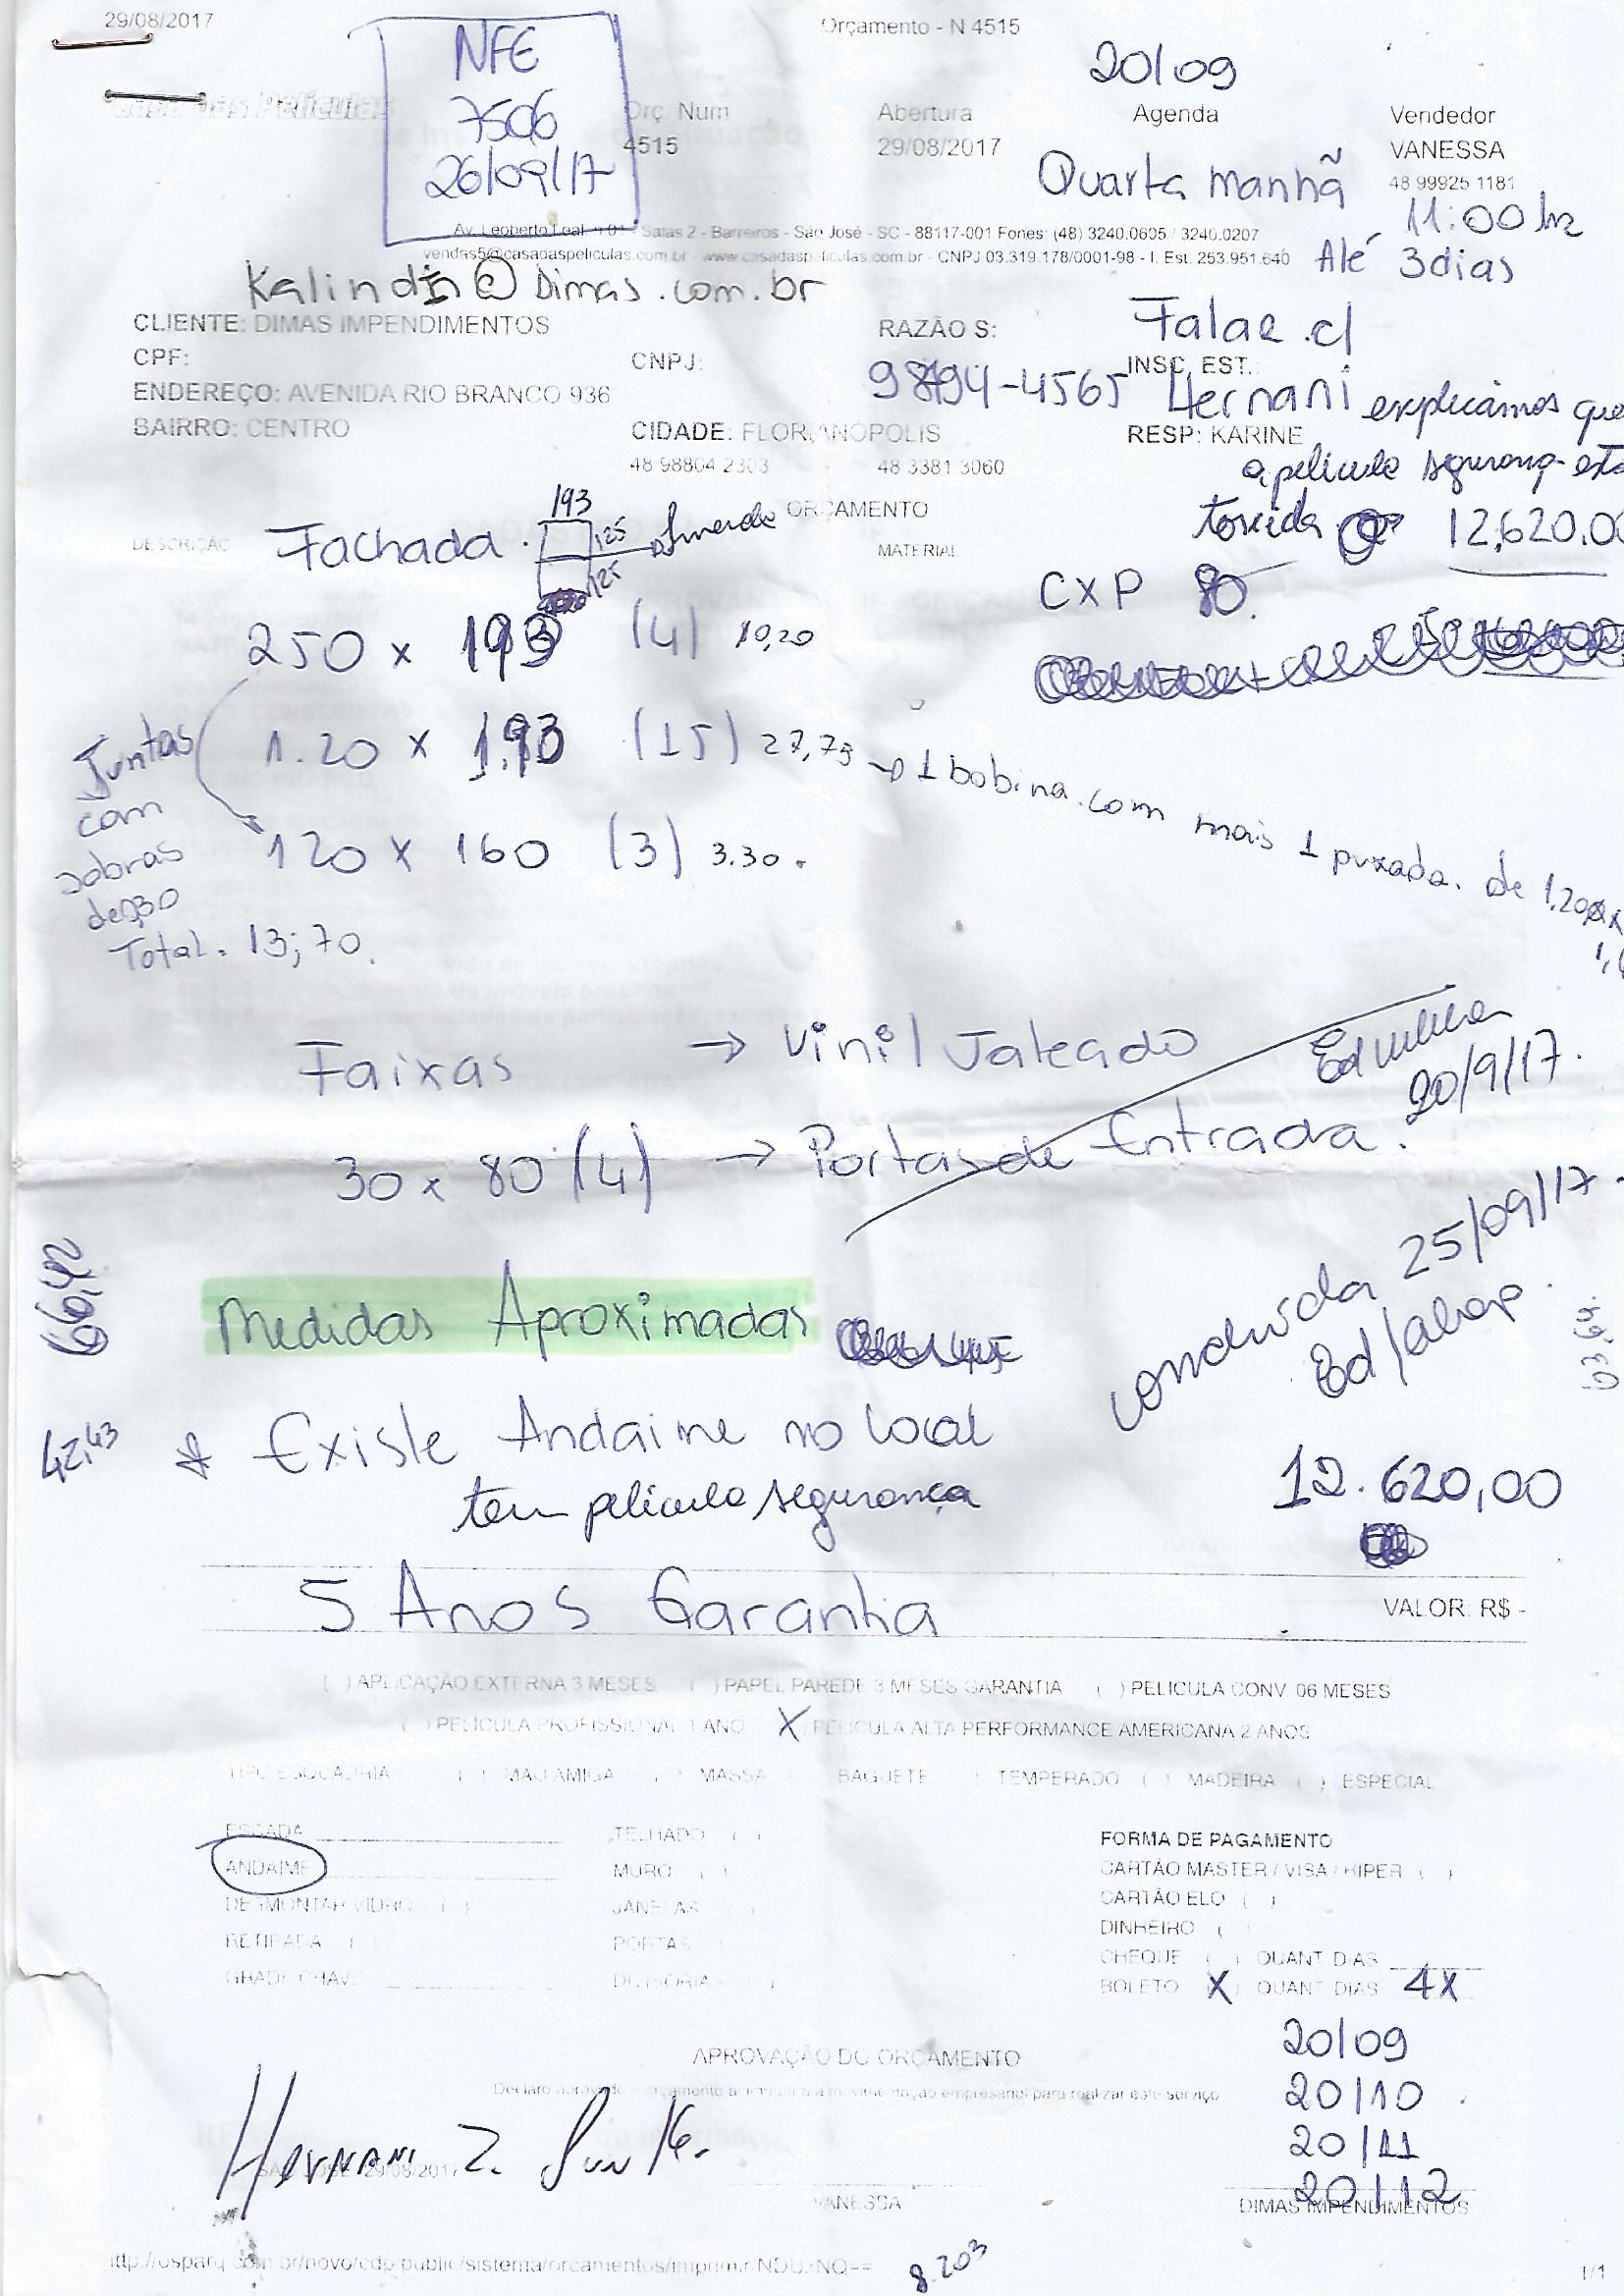 29/08/2017
Orçamento - N 4515
NFE
7506
26/09/17
20/09
Casa das Películas
Orç. Num
Abertura
Agenda
Vendedor
4515
29/08/2017
VANESSA
Quarta manhã
48 99925 1181
11:00 hr
Av. Leoberto Leal, - Salas 2 - Barreiros - São José - SC - 88117-001 Fones: (48) 3240.0605 / 3240.0207
vendas5@casadaspeliculas.com.br - www.casadaspeliculas.com.br - CNPJ 03.319.178/0001-98 - I. Est. 253.951.640
Até 3 dias
@Dimas.com.br
CLIENTE: DIMAS IMPENDIMENTOS
RAZÃO S:
Falar c/
CPF:
CNPJ:
INSC. EST.:
ENDEREÇO: AVENIDA RIO BRANCO 936
-4565
Hernani explicamos que
BAIRRO: CENTRO
CIDADE: FLORIANÓPOLIS
RESP: KARINE
48 98804 2303
48 3381 3060
a película segurança
193
ORÇAMENTO
torcida
12.620,00
DESCRIÇÃO
Fachada.
125
emenda
125
MATERIAL
CXP 80
250 x 193 (4) 10,20
1.20 x 1.93 (15) 27,75 → 1 bobina. com mais 1 puxada. de
Juntas
com
sobras
120 x 160 (3) 3.30.
Total. 13,70.
Faixas → Vinil Jateado
20/9/17.
30 x 80 (4) → Portas de Entrada.
66,42
Medidas Aproximadas
25/09/17.
42,43
* Existe Andaime no local
tem película segurança
12.620,00
5 Anos Garantia
VALOR: R$ -
( ) APLICAÇÃO EXTERNA 3 MESES ( ) PAPEL PAREDE 3 MESES GARANTIA ( ) PELICULA CONV. 06 MESES
( ) PELÍCULA PROFISSIONAL 1 ANO X PELÍCULA ALTA PERFORMANCE AMERICANA 2 ANOS
TIPO ESQUADRIA ( ) MAO AMIGA ( ) MASSA ( ) BAGUETE ( ) TEMPERADO ( ) MADEIRA ( ) ESPECIAL
ESCADA
TELHADO ( )
FORMA DE PAGAMENTO
ANDAIME
MURO ( )
CARTÃO MASTER / VISA / HIPER ( )
DESMONTAR VIDRO ( )
JANELAS
CARTÃO ELO ( )
RETIRADA (
PORTAS
DINHEIRO (
GRADE CHAVE
DIVISÓRIA
CHEQUE ( ) QUANT DIAS
BOLETO X QUANT DIAS 4X
20/09
APROVAÇÃO DO ORÇAMENTO
20/10
20/11
20/12
Hernani
29/08/2017
VANESSA
DIMAS IMPENDIMENTOS
8.203
1/1